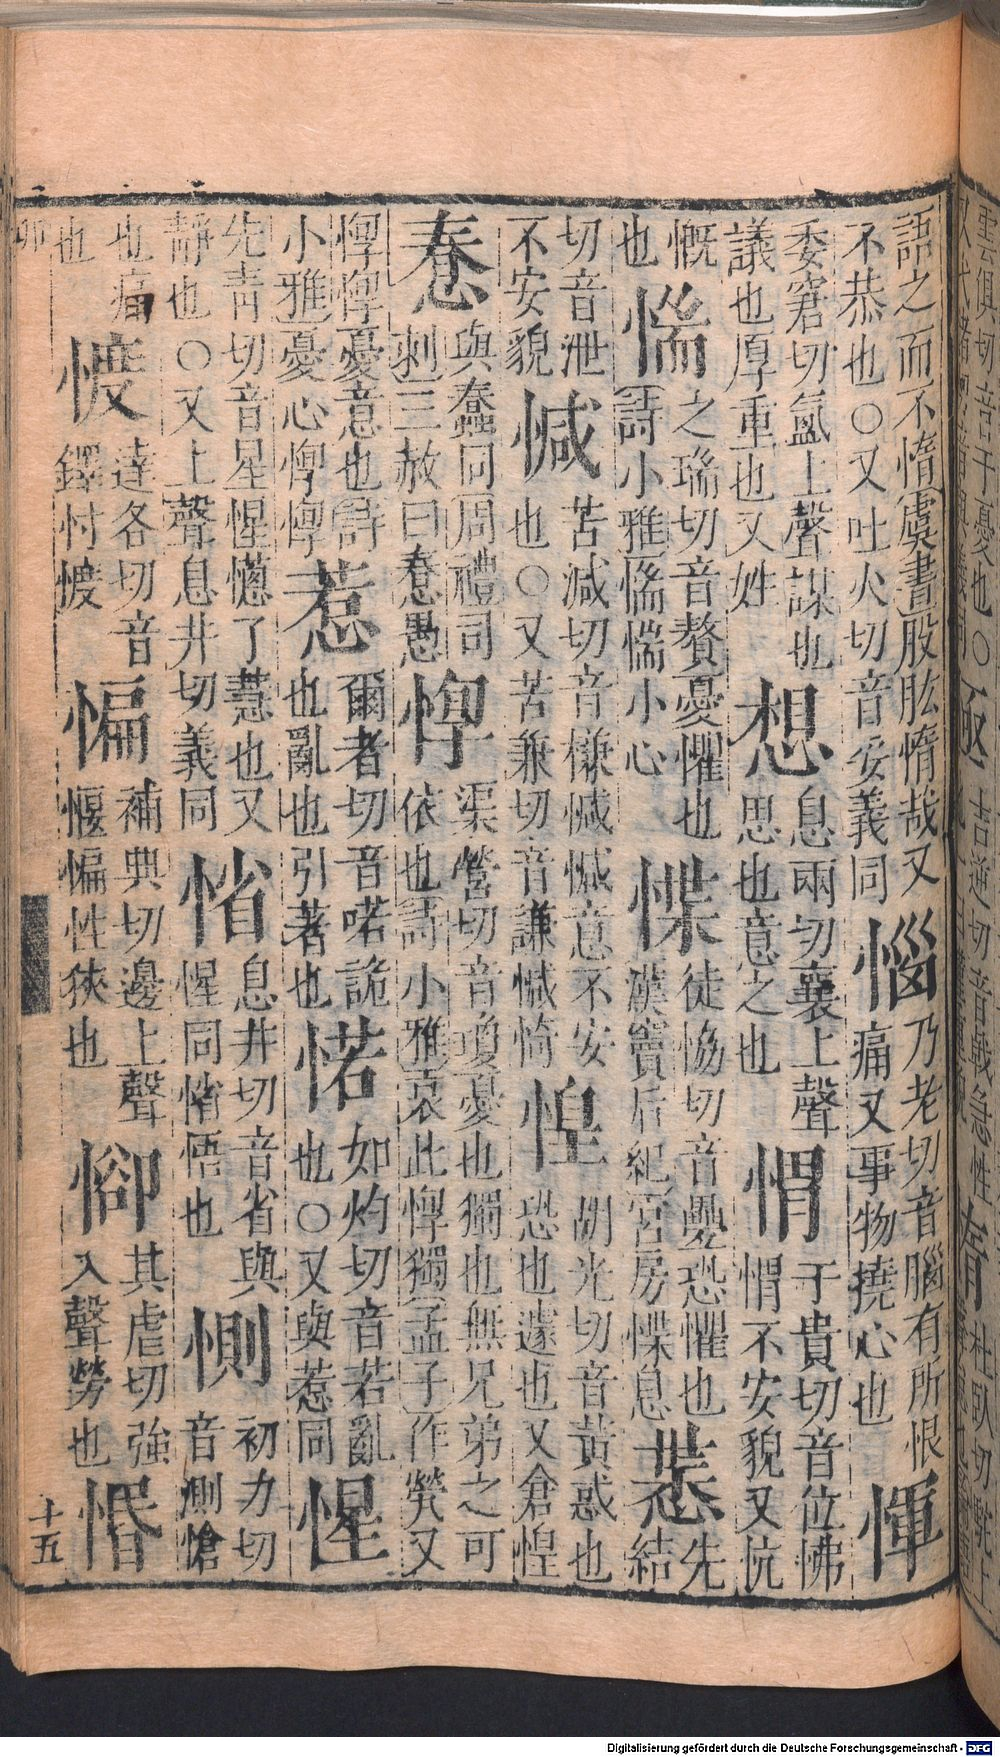 語之而不惰虞書股肱惰哉又
不恭也○又吐火切音妥義同
惱
乃老切音腦有所恨
痛又事物撓心也
惲
委窘切氳上聲謀也
議也厚重也又姓
想
息兩切襄上聲
思也意之也
㥜
于貴切音位怫
㥜不安貌又忼
慨
也
惴
之瑞切音贅憂懼也
詩小雅惴惴小心
惵
徒協切音疊恐懼也
漢竇后紀宮房惵息
先
結
切音泄
不安貌
苦減切音槏意不安
也○又苦兼切音謙
惶
胡光切音黃惑也
恐也遽也又倉惶
惷
與蠢同周禮司
刺三赦曰惷愚
惸
渠營切音瓊憂也獨也無兄弟之可
依也詩小雅哀此惸獨孟子作煢又
惸惸憂意也詩
小雅憂心惸惸
惹
爾者切音喏詭
也亂也引著也
如灼切音若亂
也○又與惹同
惺
先青切音星惺憁了慧也又
靜也○又上聲息井切義同
息井切音省與
惺同悟也
惻
初力切
音測愴
也痛
也
達各切音
鐸忖
惼
補典切邊上聲
惼性狹也
其虐切強
入聲勞也
惽
卯
十五
Digitalisierung gefördert durch die Deutsche Forschungsgemeinschaft - DFG